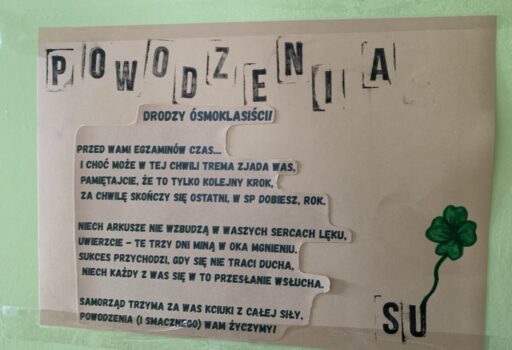 POWODZENIA
DRODZY ÓSMOKLASIŚCI!
PRZED WAMI EGZAMINÓW CZAS...
I CHOĆ MOŻE W TEJ CHWILI TREMA ZJADA WAS,
PAMIĘTAJCIE, ŻE TO TYLKO KOLEJNY KROK,
ZA CHWILĘ SKOŃCZY SIĘ OSTATNI, W SP DOBIESZ, ROK.
NIECH ARKUSZE NIE WZBUDZĄ W WASZYCH SERCACH LĘKU,
UWIERZCIE - TE TRZY DNI MINĄ W OKA MGNIENIU.
SUKCES PRZYCHODZI, GDY SIĘ NIE TRACI DUCHA,
NIECH KAŻDY Z WAS SIĘ W TO PRZESŁANIE WSŁUCHA.
SAMORZĄD TRZYMA ZA WAS KCIUKI Z CAŁEJ SIŁY,
POWODZENIA (I SMACZNEGO) WAM ŻYCZYMY!
SU